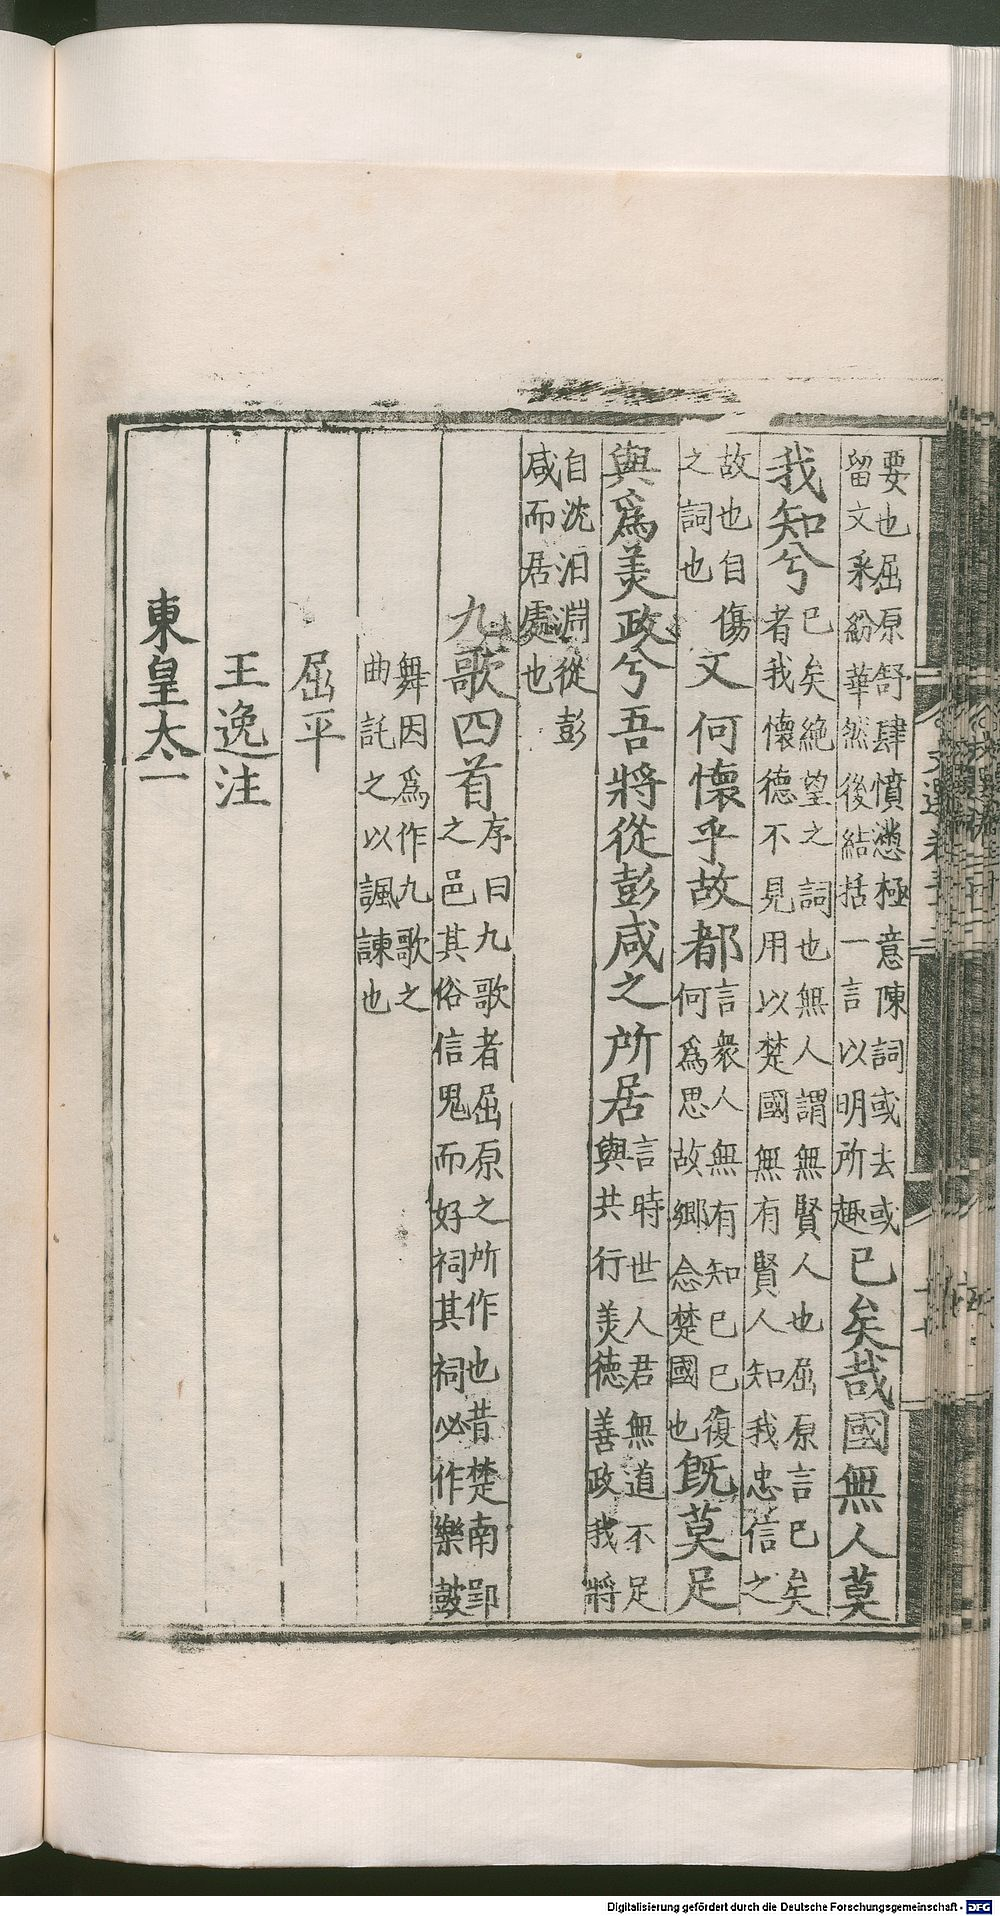 要也屈原舒肆憤懣極意陳詞或去或
留文釆紛華然後結括一言以明所趣已矣哉國無人莫
我知兮已矣絶望之詞也無人謂無賢人也屈原言已矣
者我懷德不見用以楚國無有賢人知我忠信之
故也自傷
之詞也文何懷乎故都言衆人無有知已已復
何爲思故鄉念楚國也旣莫足
與爲美政兮吾將從彭咸之所居言時世人君無道不足
與共行美德善政我將
自沈汨淵從彭
咸而居處也
九歌四首序曰九歌者屈原之所作也昔楚南郢
之邑其俗信鬼而好祠其祠必作樂鼓
舞因爲作九歌之
曲託之以諷諫也
屈平
王逸注
東皇太一
Digitalisierung gefördert durch die Deutsche Forschungsgemeinschaft - DFG